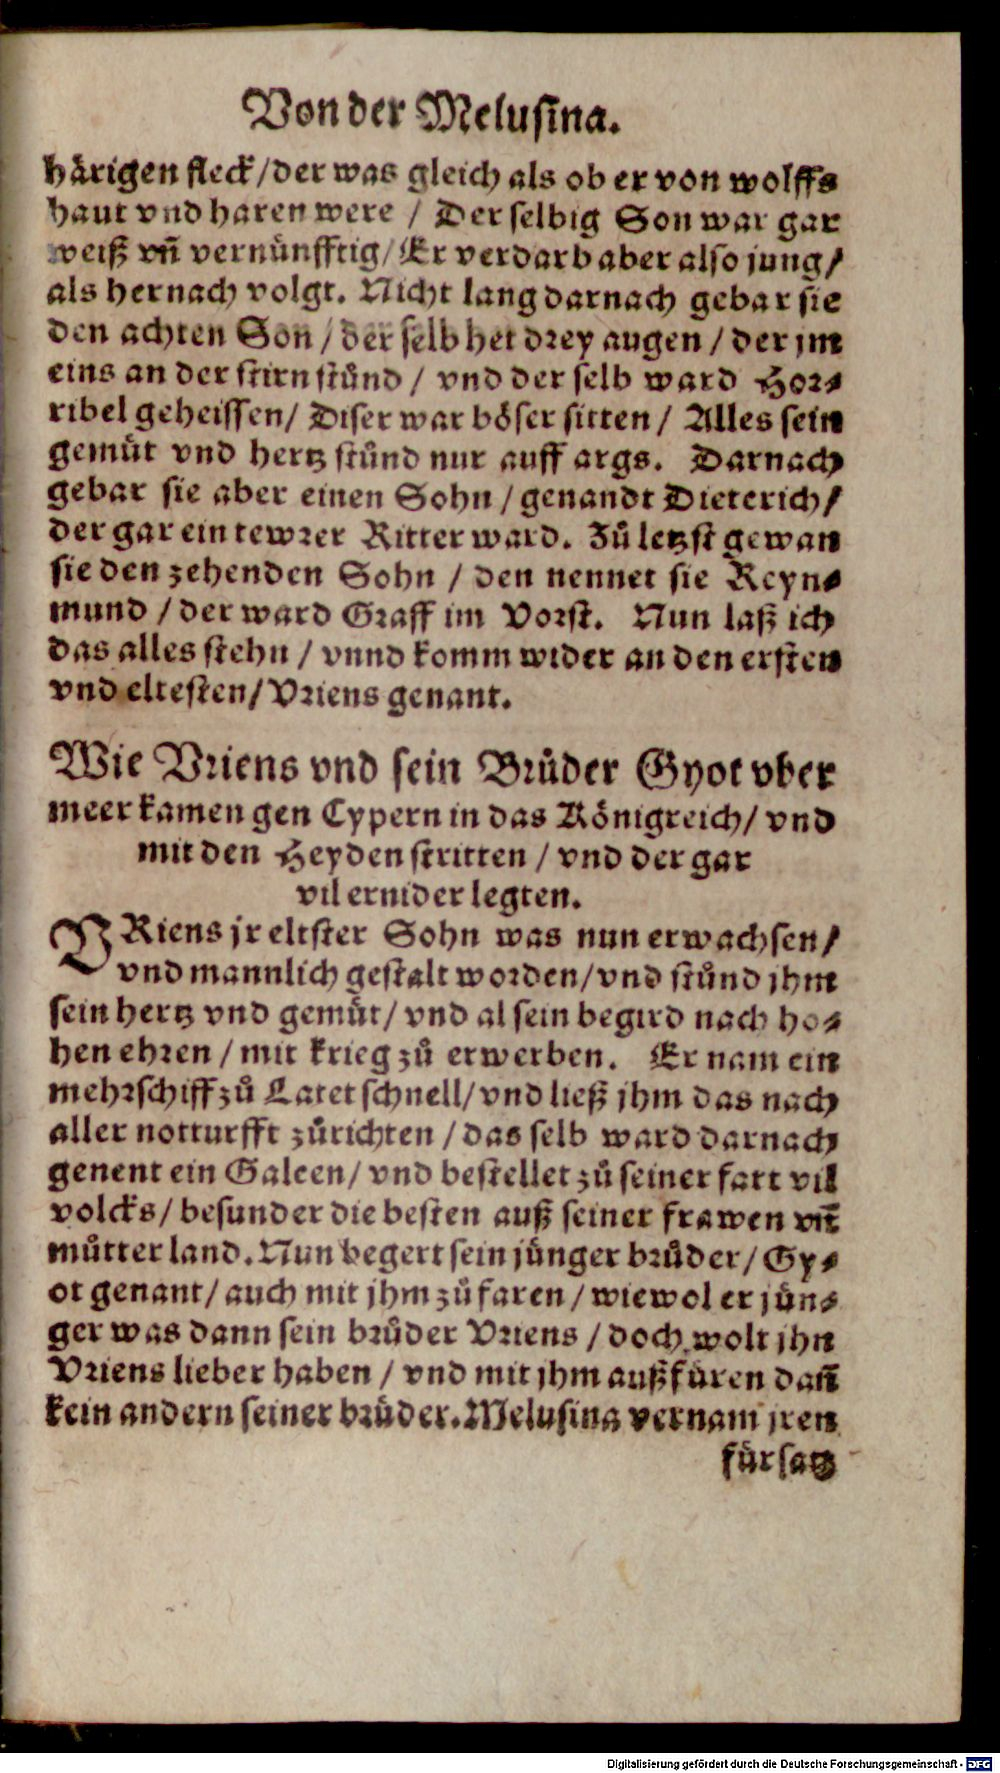 Von der Melusina.
härigen fleck/der was gleich als ob er von wolffs
haut vnd haren were / Der selbig Son war gar
weiß vñ vernünfftig/Er verdarb aber also jung/
als hernach volgt. Nicht lang darnach gebar sie
den achten Son / der selb het drey augen / der jm
eins an der stirn stůnd / vnd der selb ward Hor⸗
ribel geheissen/ Diser war böser sitten / Alles sein
gemüt vnd hertz stůnd nur auff args. Darnach
gebar sie aber einen Sohn / genandt Dieterich/
der gar ein tewrer Ritter ward. Zů letzst gewan
sie den zehenden Sohn / den nennet sie Reyn⸗
mund / der ward Graff im Vorst. Nun laß ich
das alles stehn / vnnd komm wider an den ersten
vnd eltesten/ Vriens genant.
Wie Vriens vnd sein Brůder Gyot vber
meer kamen gen Cypern in das Königreich/ vnd
mit den Heyden stritten / vnd der gar
vil ernider legten.
VRiens jr eltster Sohn was nun erwachsen/
vnd mannlich gestalt worden/vnd stůnd jhm
sein hertz vnd gemüt/ vnd al sein begird nach ho⸗
hen ehren / mit krieg zů erwerben. Er nam ein
mehrschiff zů Latet schnell/ vnd ließ jhm das nach
aller notturfft zůrichten / das selb ward darnach
genent ein Galeen/ vnd bestellet zů seiner fart vil
volcks/ besunder die besten auß seiner frawen vñ
můtter land. Nun begert sein jünger brůder/ Gy⸗
ot genant/ auch mit jhm zů faren / wiewol er jün⸗
ger was dann sein brůder Vriens / doch wolt jhn
Vriens lieber haben / vnd mit jhm außfüren dañ
kein andern seiner brüder. Melusina vernam jren
fürsatz
Digitalisierung gefördert durch die Deutsche Forschungsgemeinschaft - DFG